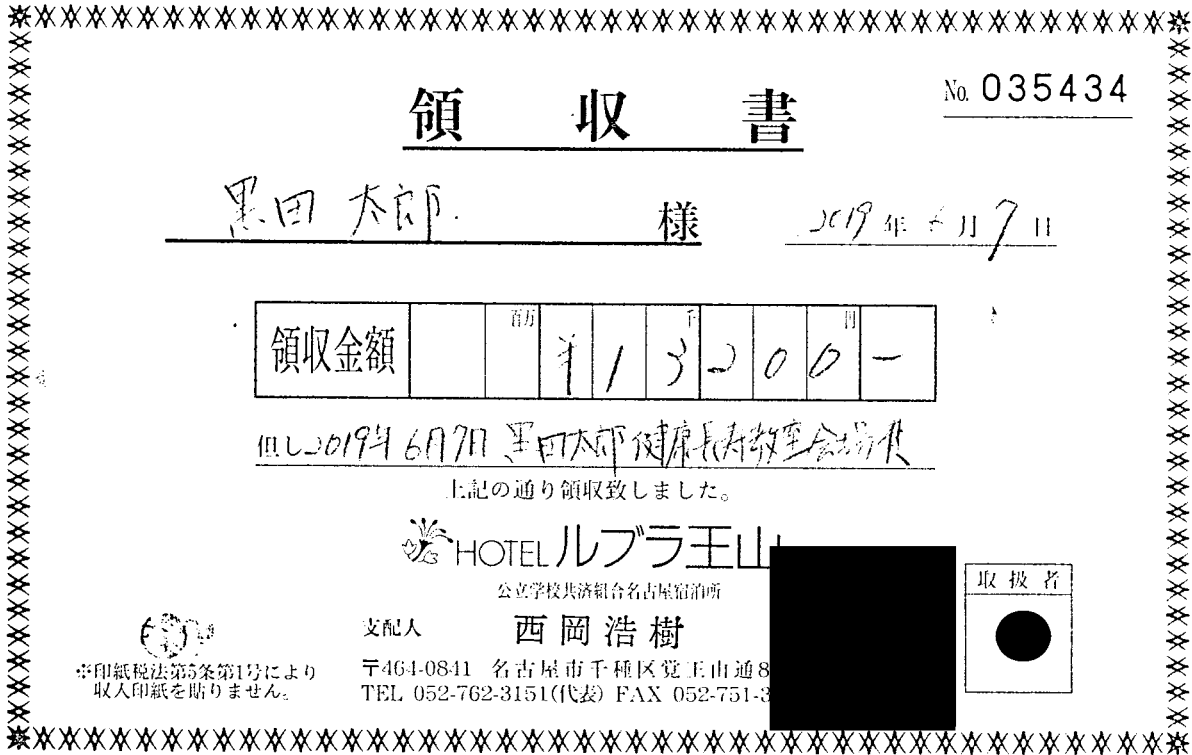 領収書
No. 035434
黒田 太郎. 様
2019年6月7日
領収金額 百万 千 円
¥13200-
但し2019年6月7日 黒田太郎健康長寿教室会場費
上記の通り領収致しました。
HOTEL ルブラ王山
公立学校共済組合名古屋宿泊所
支配人 西岡浩樹
〒464-0841 名古屋市千種区覚王山通8
TEL 052-762-3151(代表) FAX 052-751-3
※印紙税法第5条第1号により
収入印紙を貼りません。
取扱者